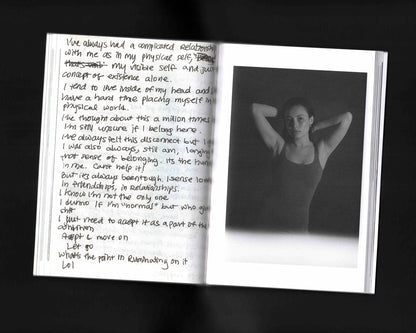 I've always had a complicated relationship
with me as in my physical self,
that's my visible self and just
concept of existence alone.
I tend to live inside of my head and
have a hard time placing myself in
physical world.
I've thought about this a million times
I'm still unsure if I belong here.
I've always felt this disconnect but I
I was also always, still am, longing
that sense of belonging. It's the human
in me. Can't help it!
But it's always been tough. I sense
in friendships, in relationships.
I know I'm not the only one
I dunno if I'm "normal" but who
shit
I just need to accept it as a part of the
condition
Accept & move on
Let go
What's the point in ruminating on it
Lol